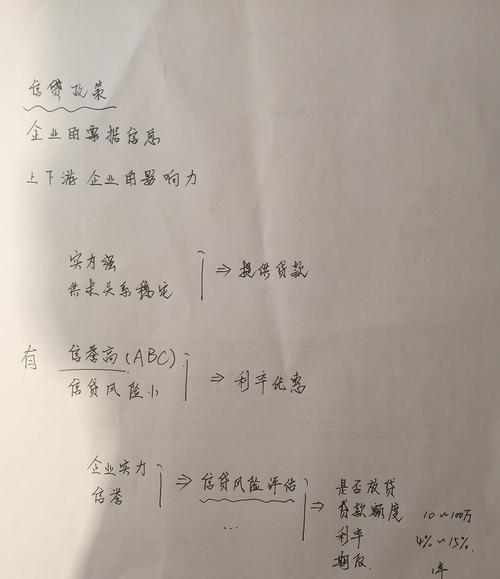 信贷政策
企业的票据信息
上下游企业的影响力
实力强
供求关系稳定
⇒ 提供贷款
有 信誉高(ABC)
信贷风险小
⇒ 利率优惠
企业实力
信誉
⇒ 信贷风险评估
...
⇒ 是否放贷
贷款额度 10~100万
利率 4%~15%.
期限 1年